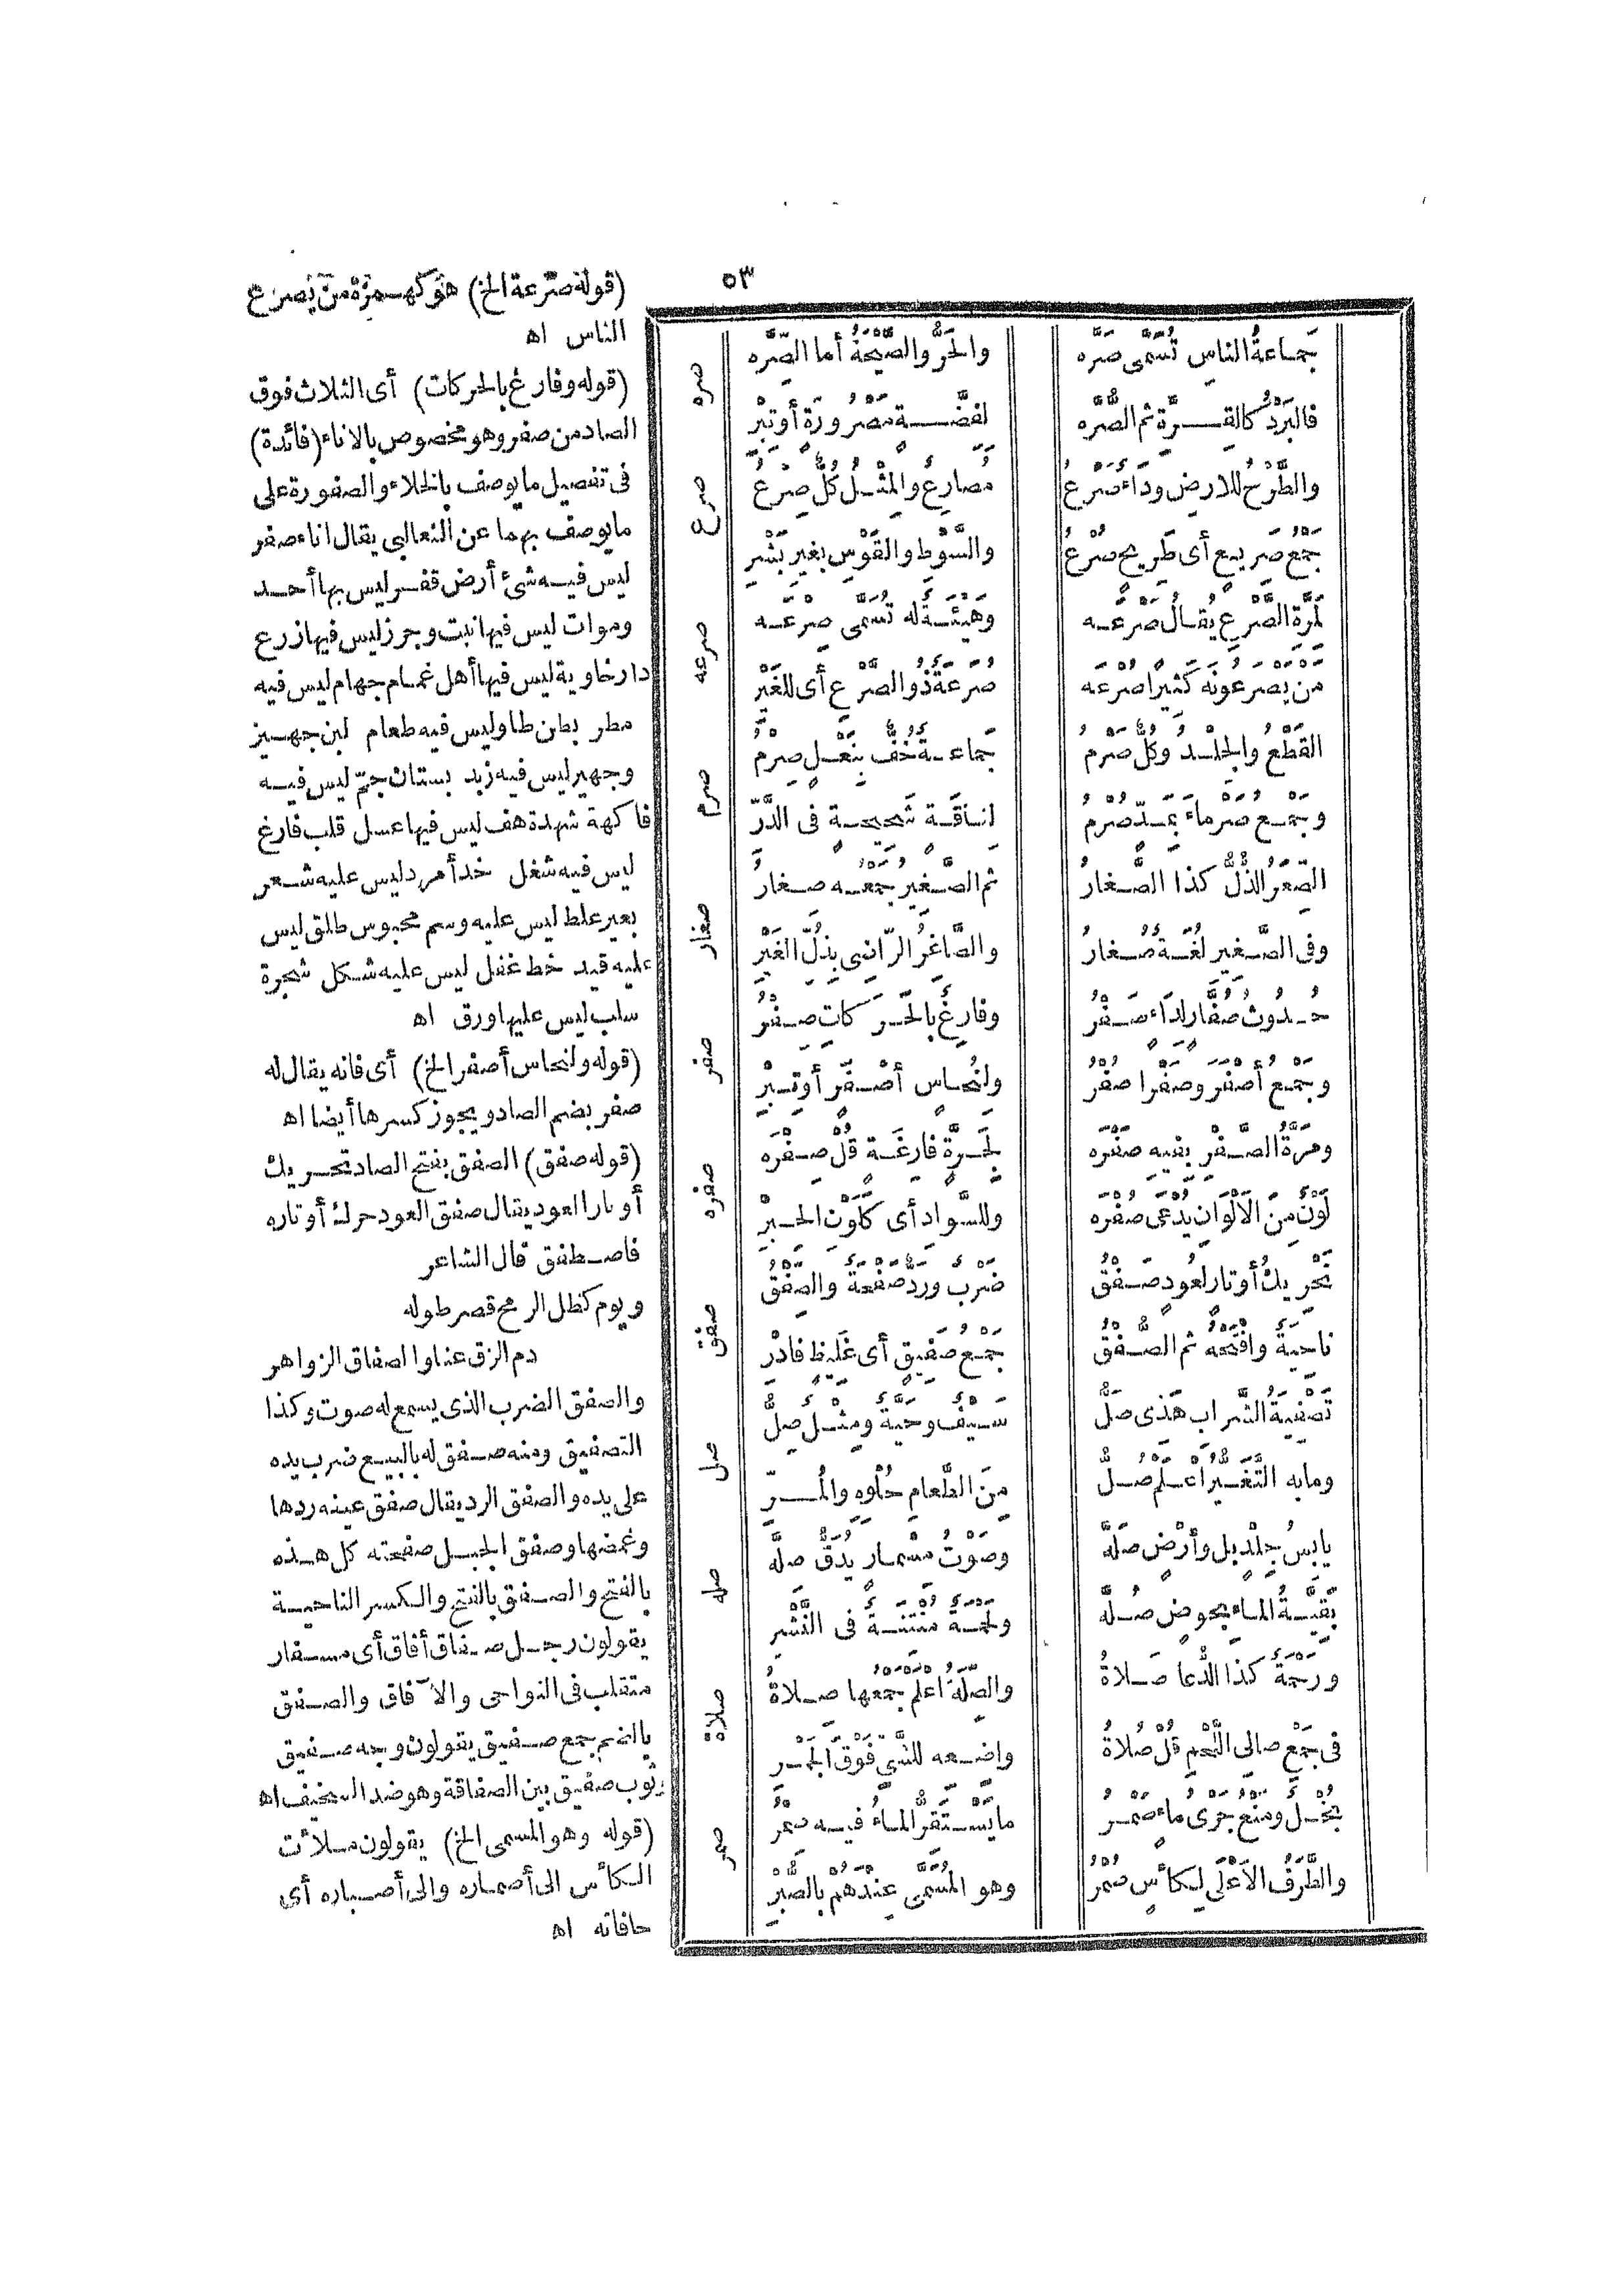 ٥٣
جَماعةُ الناسِ تُسَمَّى صَرَّه
والحَرُّ والصَّيْحَةُ أما الصِّرَّه
فالبَرْدُ كالقِرَّةِ ثم الصُّرَّه
لفِضَّةٍ مَصْرُورَةٍ أو تِبْرِ
صره
والطَّرْحُ للارضِ وداءٌ صَرْعُ
مَصارِعٌ والمِثْلُ كُلٌّ صِرْعُ
جَمْعُ صَرِيعٍ أى طَرِيحٍ صُرْعُ
والسَّوْطِ والقَوْسِ بغيرِ بَشْرِ
صرع
لمَرَّةِ الصَّرْعِ يُقالُ صَرْعَه
وهَيْئَةٌ له تُسَمَّى صِرْعَه
مَن يَصْرَعُونَه كَثِيرًا صُرْعَه
صُرَعَةٌ ذُو الصَّرْعِ أى للغَيْرِ
صرعه
القَطْعُ والجِلْدُ وكُلٌّ صَرْمُ
جَماعةٌ خُفٌّ بنَعْلٍ صِرْمُ
وجَمْعُ صَرْماءَ بمَدٍّ صُرْمُ
لناقَةٍ شَحِيحةٍ فى الدَّرِّ
صرم
الصِّغَرُ الذُّلُّ كذا الصَّغارُ
ثم الصَّغِيرُ جَمْعُه صِغارُ
وفى الصَّغِيرِ لُغَةٌ صُغارُ
والصَّاغِرُ الرَّاضِى بذُلِّ الغَيْرِ
صغار
حُدُوثُ صُفَّارٍ لداءٍ صَفْرُ
وفارِغٌ بالحَرَكاتِ صِفْرُ
وجَمْعُ أَصْفَرَ وصَفْرا صُفْرُ
ولنُحاسٍ أَصْفَرٍ أو تِبْرِ
صفر
ومَرَّةُ الصَّفْرِ بفِيهِ صَفْرَه
لجَرَّةٍ فارِغَةٍ قُلْ صِفْرَه
لَوْنٌ مِنَ الاَلْوانِ يُدْعَى صُفْرَه
وللسَّوادِ أى كَلَوْنِ الحِبْرِ
صفره
تَحْرِيكُ أوتارٍ لعُودٍ صَفْقُ
ضَرْبٌ ورَدٌّ صَفْحَةٌ والصِّفْقُ
ناحِيَةٌ وافْتَحْه ثم الصُّفْقُ
جَمْعُ صَفِيقٍ أى غَلِيظٍ فادْرِ
صفق
تَصْفِيَةُ الشَّرابِ هَذِى صَلُّ
سَيْفٌ وحَيَّةٌ ومِثْلٌ صِلُّ
وما به التَّغْيِيرُ اعْلَمْ صُلُّ
مِنَ الطَّعامِ حُلْوِهِ والمُرِّ
صل
يابِسُ جِلْدٍ بل وأَرْضٍ صَلَّه
وصَوْتُ مِسْمارٍ يُدَقُّ صِلَّه
بَقِيَّةُ الماءِ بحَوضٍ صُلَّه
ولَحْمَةٌ مُنْتِنَةٌ فى النَّشْرِ
صله
ورَحْمَةٌ كذا الدُّعا صَلاةُ
والصِّلَةُ اعْلَمْ جَمْعُها صِلاةُ
فى جَمْعِ صالى اللَّحْمِ قُلْ صُلاةُ
واضِعِه للشَّىِّ فَوْقَ الجَمْرِ
صلاة
بُخْلٌ ومَنْعٌ جَرْىُ ماءٍ صَمْرُ
ما يَسْتَقِرُّ الماءُ فيه صِمْرُ
والطَّرَفُ الاَعْلَى لكأْسٍ صُمْرُ
وهو المُسَمَّى عِنْدَهُمْ بالصُّبْرِ
صمر
(قوله صرعة الخ) هو كهمزة من يصرع
الناس اه
(قوله وفارغ بالحركات) أى الثلاث فوق
الصاد من صفر وهو مخصوص بالاناء (فائدة)
فى تفصيل ما يوصف بالخلاء والصفورة على
ما يوصف بهما عن الثعالبى يقال اناء صفر
ليس فيه شئ أرض قفر ليس بها أحد
وموات ليس فيها نبت وجرز ليس فيها زرع
دار خاوية ليس فيها أهل غمام جهام ليس فيه
مطر بطن طاو ليس فيه طعام لبن جهيز
وجهير ليس فيه زبد بستان جمّ ليس فيه
فاكهة شهدة هف ليس فيها عسل قلب فارغ
ليس فيه شغل خد أمرد ليس عليه شعر
بعير علط ليس عليه وسم محبوس طلق ليس
عليه قيد خط غفل ليس عليه شكل شجرة
سلب ليس عليها ورق اه
(قوله ولنحاس أصفر الخ) أى فانه يقال له
صفر بضم الصاد ويجوز كسرها أيضا اه
(قوله صفق) الصفق بفتح الصاد تحريك
أوتار العود يقال صفق العود حرك أوتاره
فاصطفق قال الشاعر
ويوم كظل الرمح قصر طوله
دم الزق عنا والصفاق الزواهر
والصفق الضرب الذى يسمع له صوت وكذا
التصفيق ومنه صفق له بالبيع ضرب يده
على يده والصفق الرد يقال صفق عينه ردها
وغمضها وصفق الجبل صفحته كل هذه
بالفتح والصفق بالفتح والكسر الناحية
يقولون رجل صفاق أفاق أى مسفار
متقلب فى النواحى والآفاق والصفق
بالضم جمع صفيق يقولون وجه صفيق
وثوب صفيق بين الصفاقة وهو ضد السخيف اه
(قوله وهو المسمى الخ) يقولون ملأت
الكأس الى أصماره والى أصباره أى
حافاته اه